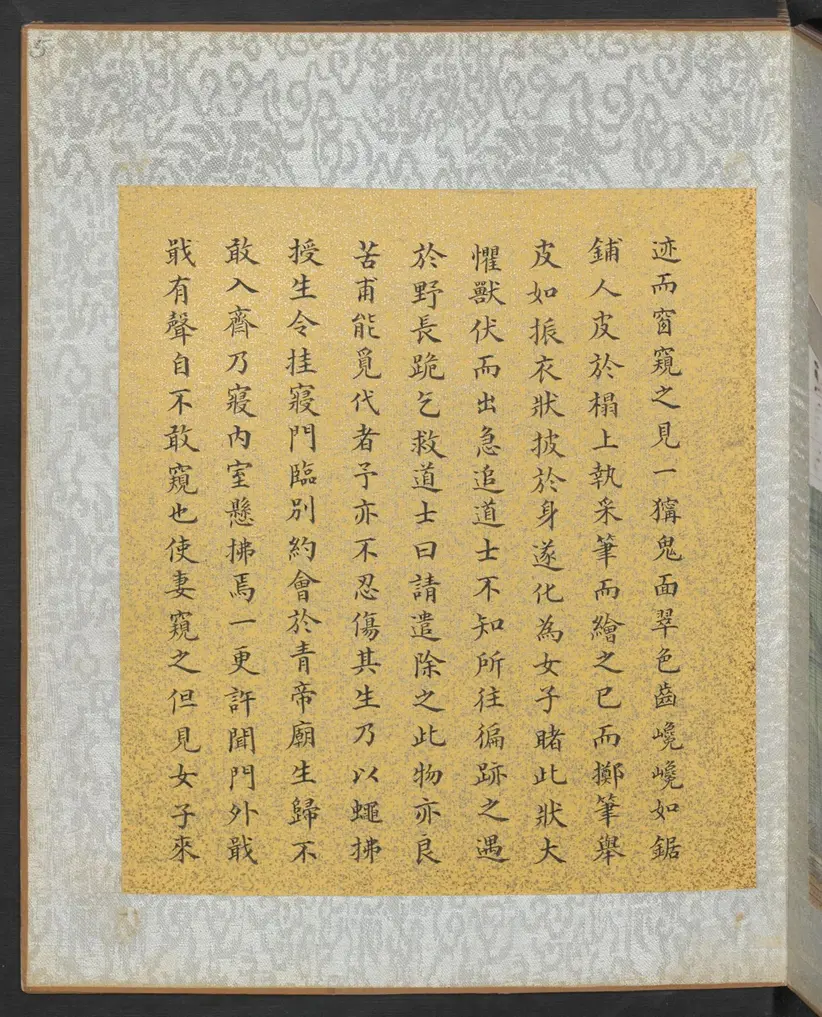 5
迹而窗窺之見一獰鬼面翠色齒巉巉如鋸
鋪人皮於榻上執采筆而繪之已而擲筆舉
皮如振衣狀披於身遂化為女子睹此狀大
懼獸伏而出急追道士不知所往徧跡之遇
於野長跪乞救道士曰請遣除之此物亦良
苦甫能覓代者予亦不忍傷其生乃以蠅拂
授生令挂寢門臨別約會於青帝廟生歸不
敢入齋乃寢內室懸拂焉一更許聞門外戢
戢有聲自不敢窺也使妻窺之但見女子來